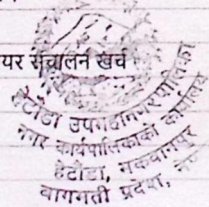 यर संचालन खर्च
हेटौंडा उपमहानगरपालिका
नगर कार्यपालिकाको कार्यालय
हेटौंडा, मकवानपुर
बागमती प्रदेश,